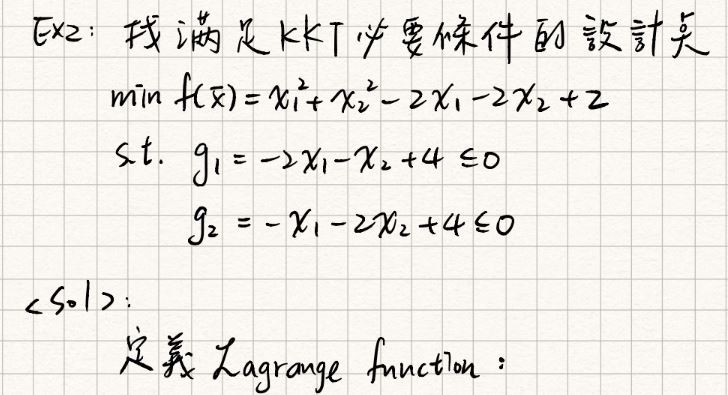 Ex2: 找滿足KKT必要條件的設計點
min f(x̄) = x₁² + x₂² - 2x₁ - 2x₂ + 2
s.t. g₁ = -2x₁ - x₂ + 4 ≤ 0
g₂ = -x₁ - 2x₂ + 4 ≤ 0
<Sol>:
定義 Lagrange function: